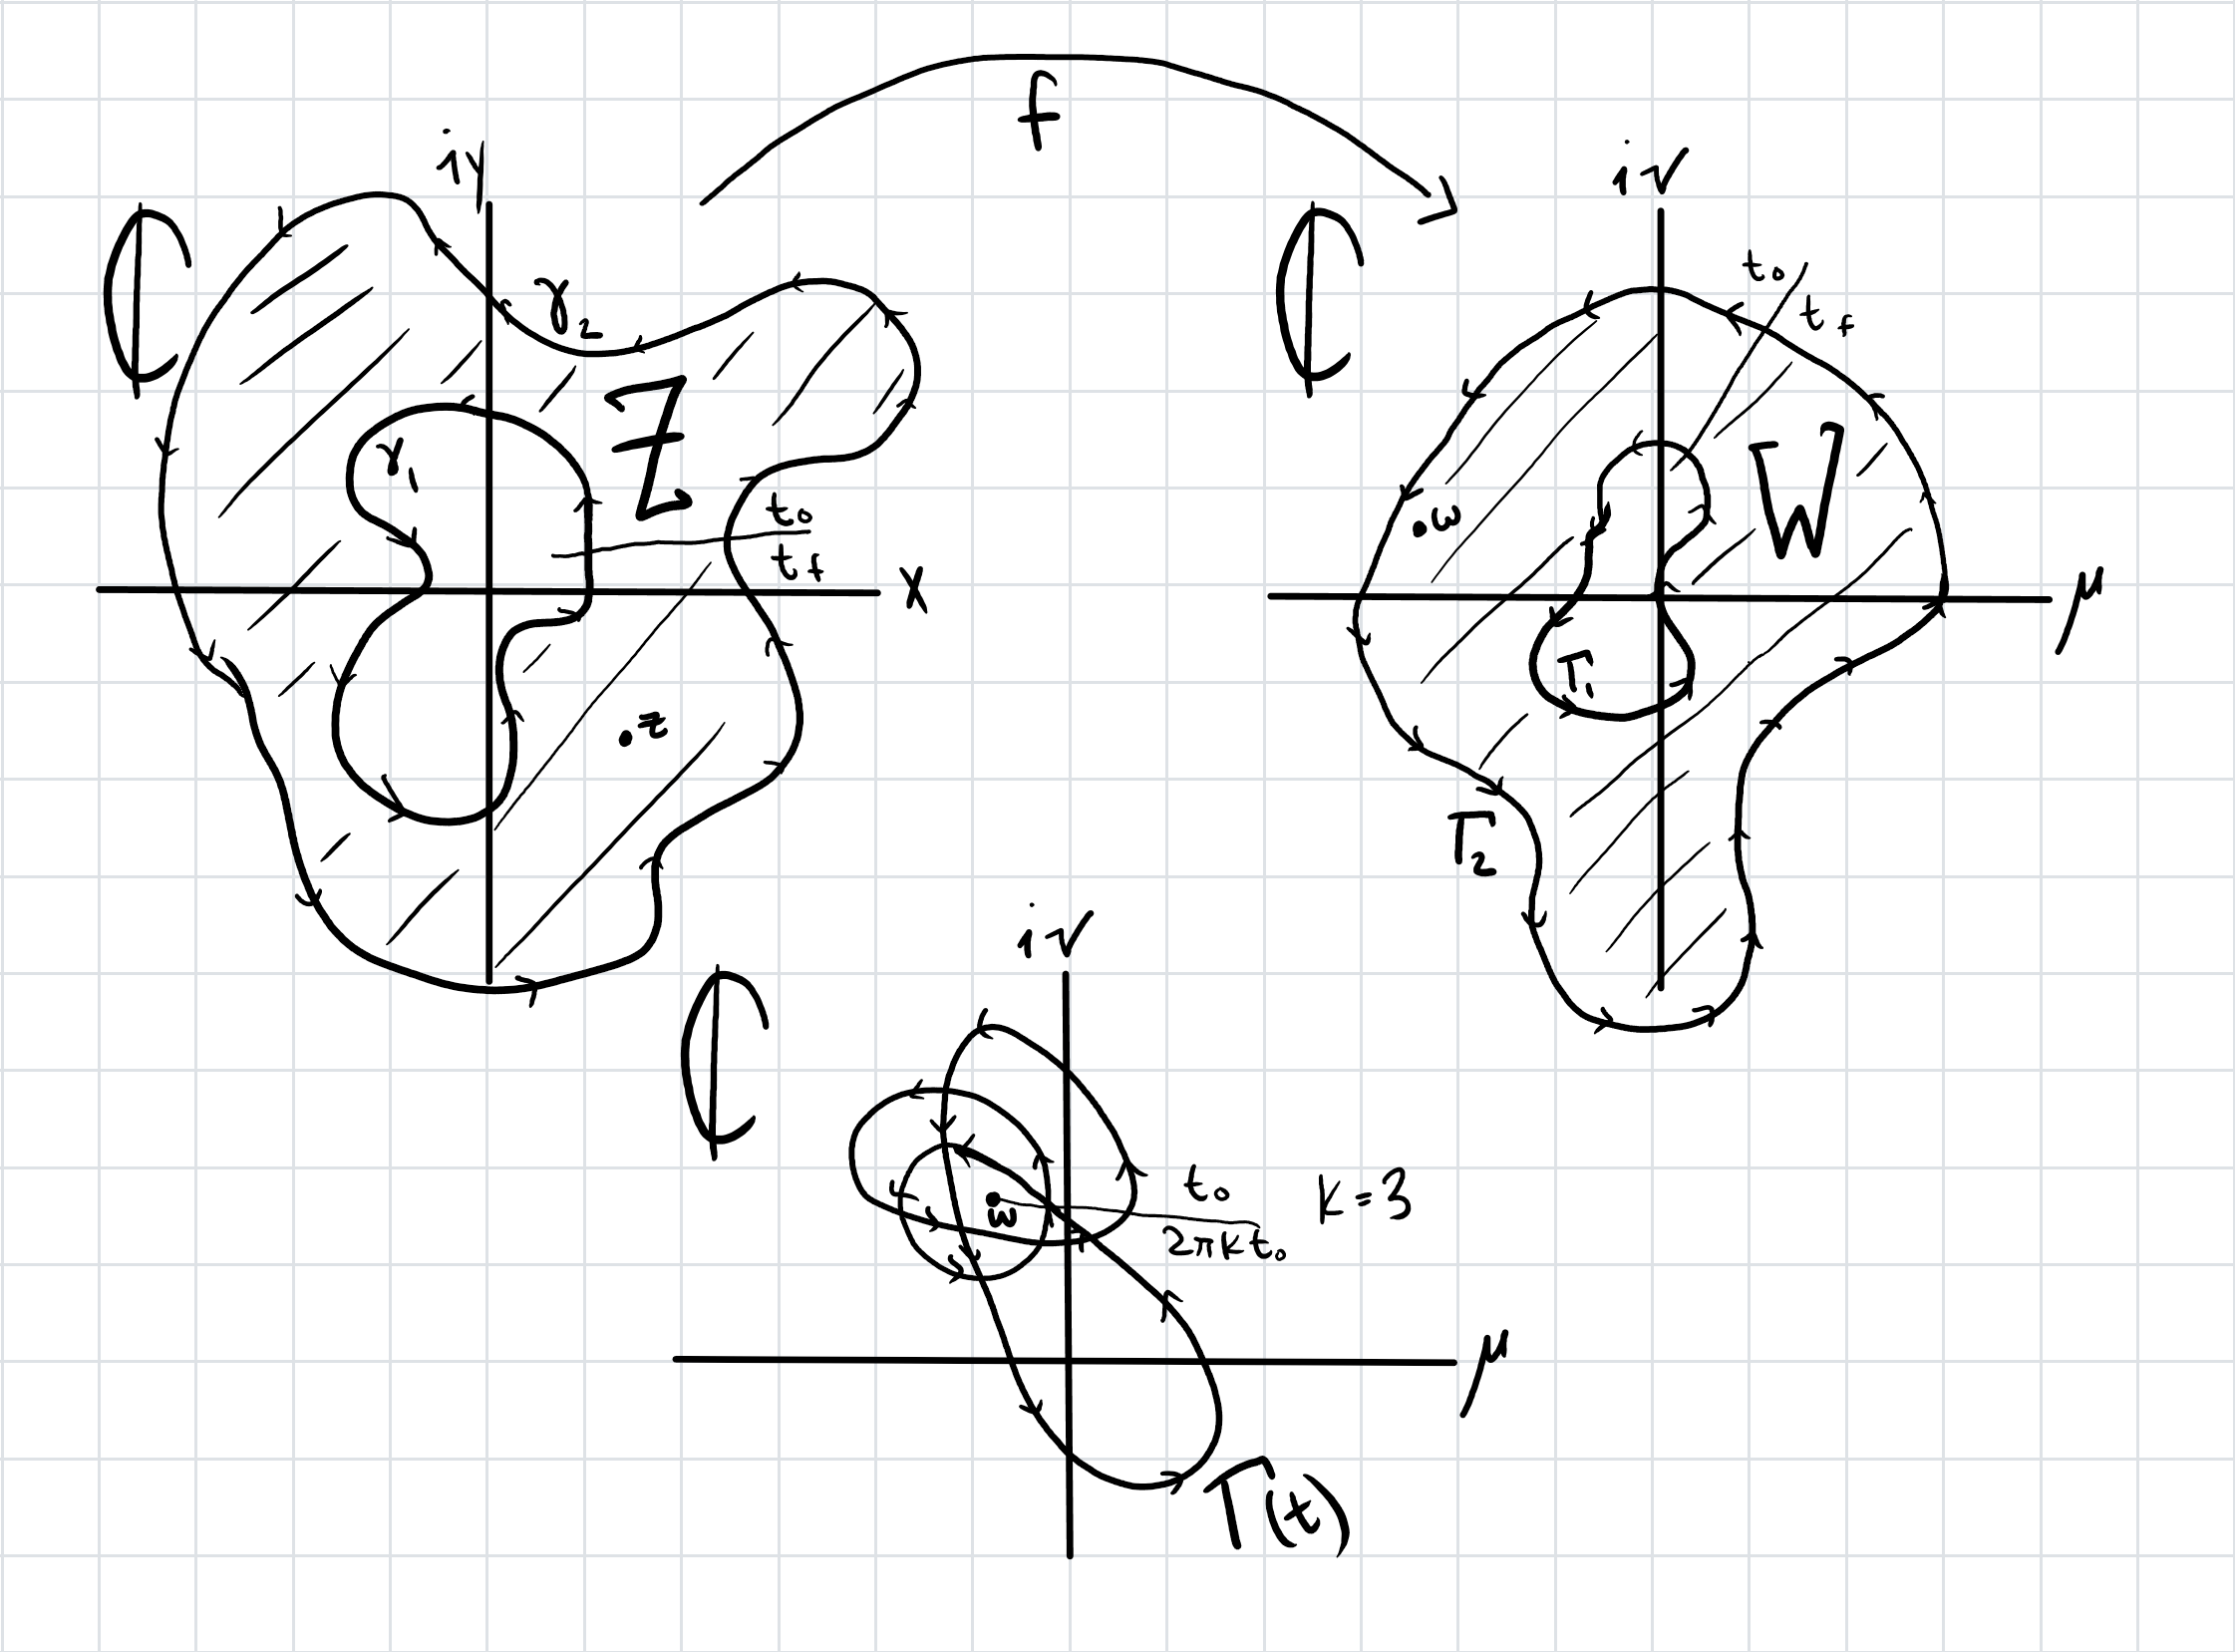 f
iy
ℂ
γ₂
γ₁
Z
t₀
t_f
x
.z
iv
ℂ
t₀
t_f
W
.w
μ
Γ₁
Γ₂
iv
ℂ
t₀
K=3
w
2πkt₀
μ
Γ(t)